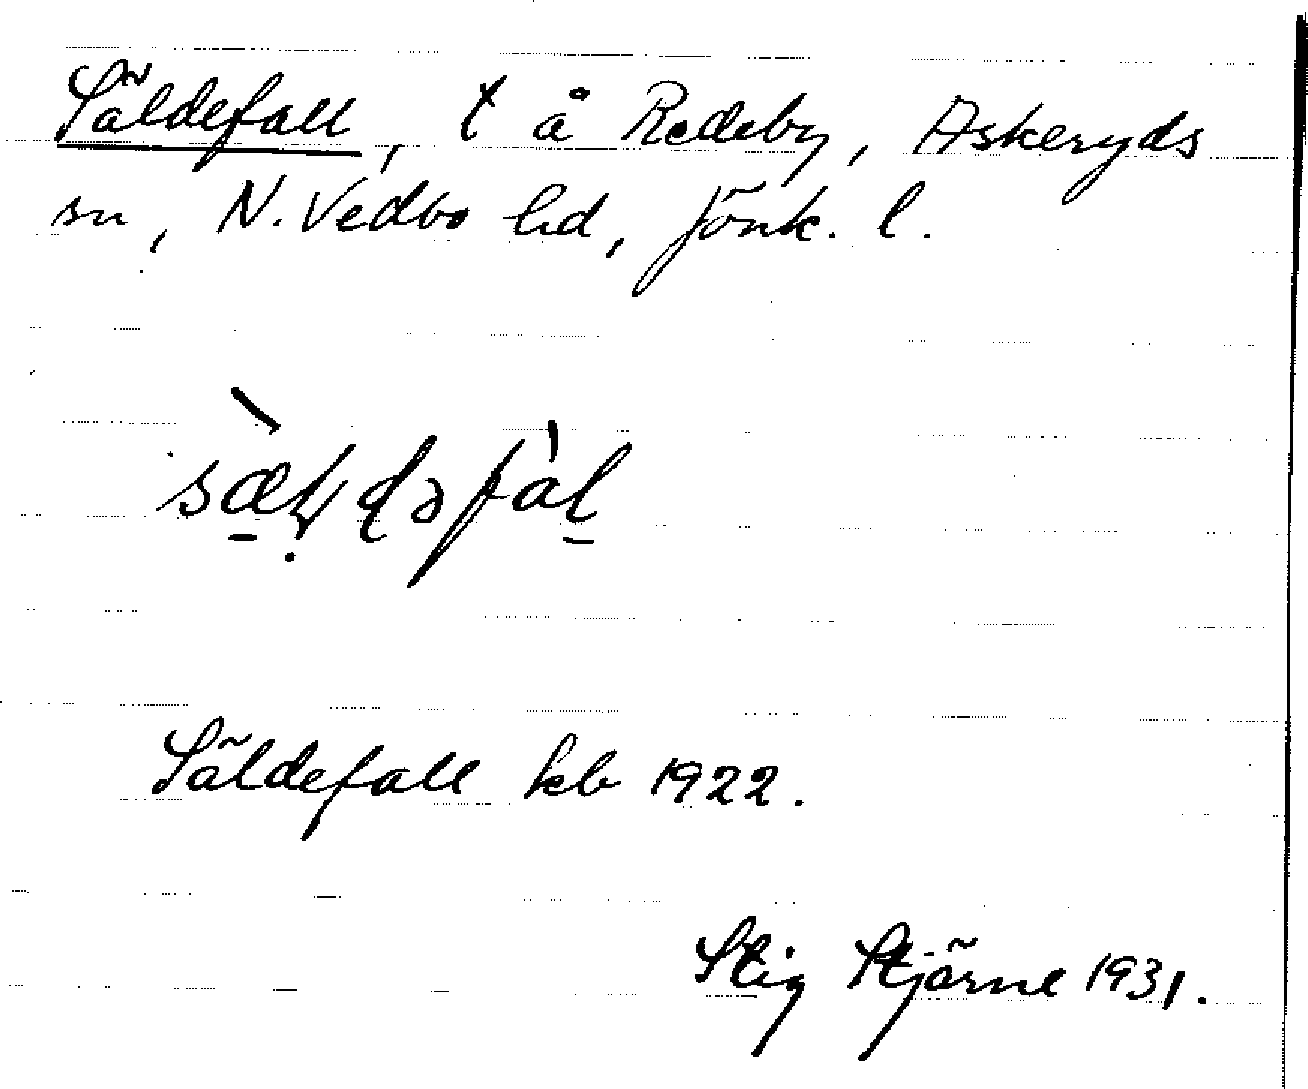 Säldefall, t å Redeby, Askeryds
sn, N. Vedbo hd, Jönk. l.
Säldefall kb 1922.
Stig Stjärne 1931.